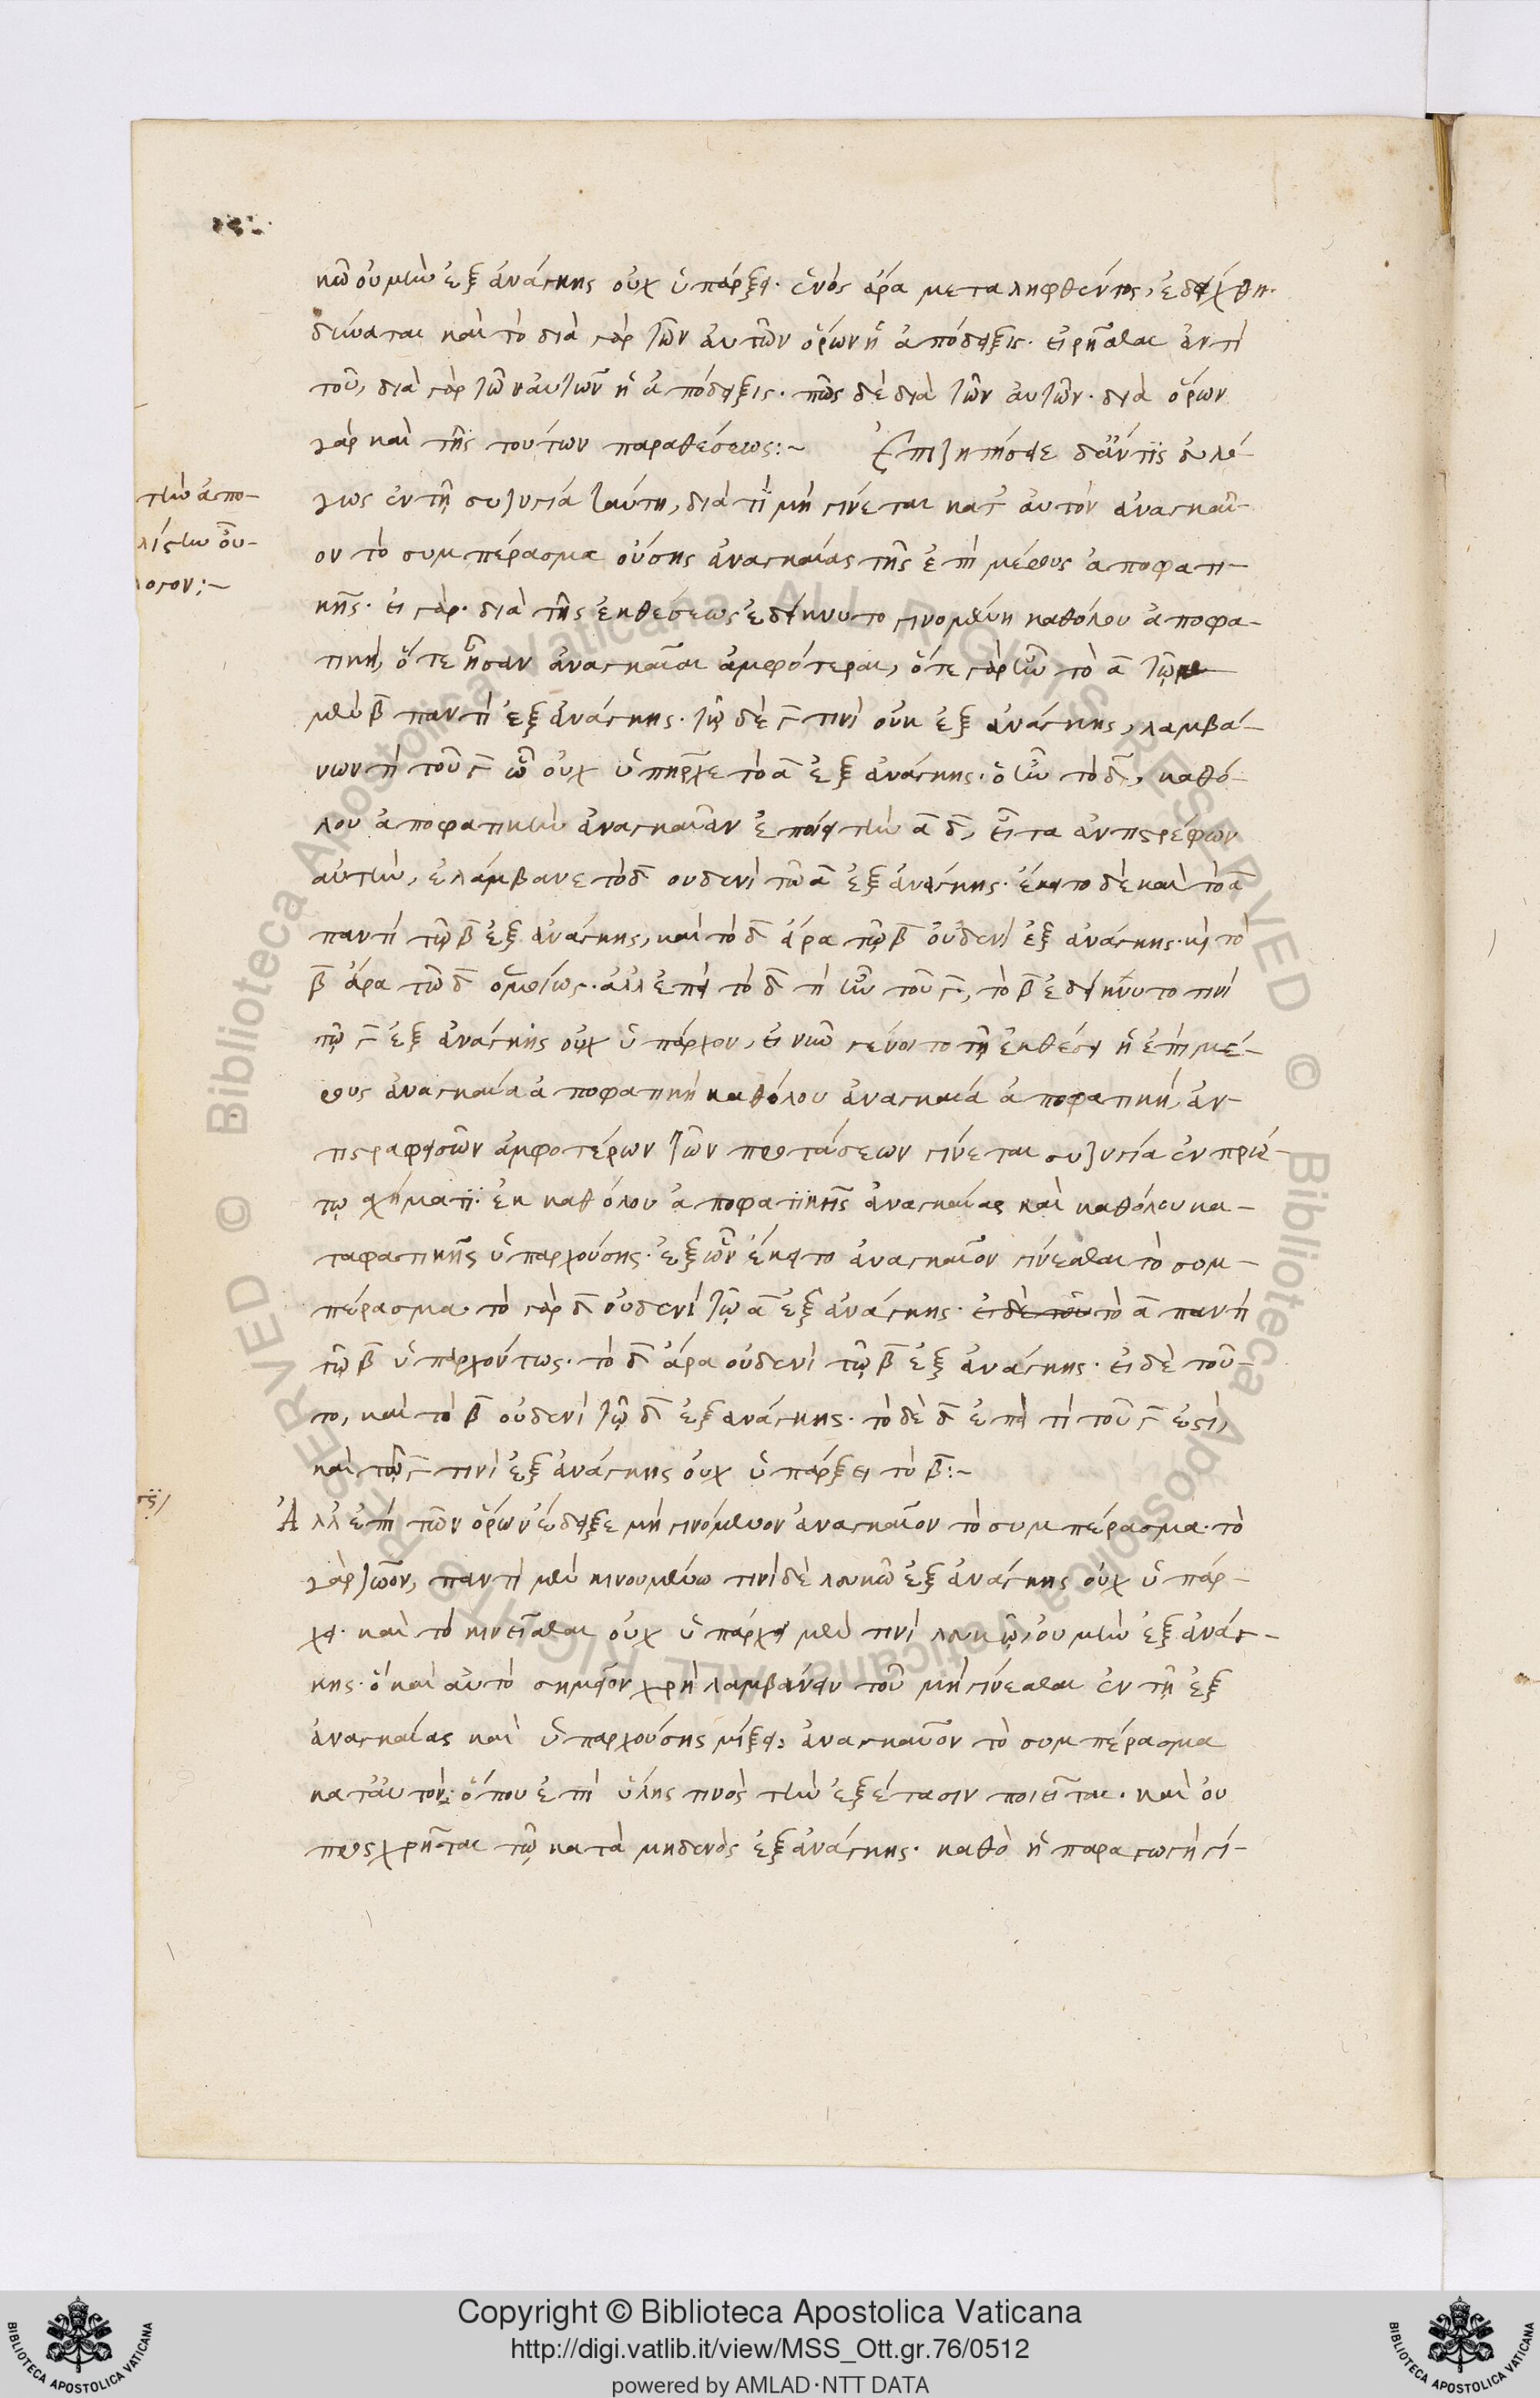 κῷ οὐ μὴν ἐξ ἀνάγκης οὐχ ὑπάρξει. ἑνὸς ἄρα μεταληφθέντος, ἐδείχθη.
δύναται καὶ τὸ διὰ γὰρ τῶν αὐτῶν ὅρων ἡ ἀπόδειξις. εἰρῆσθαι ἀντὶ
τοῦ, διὰ γὰρ τῶν αὐτῶν ἡ ἀπόδειξις. πῶς δὲ διὰ τῶν αὐτῶν. διὰ ὅρων
γὰρ καὶ τῆς τούτων παραθέσεως:~ Ἐπιζητήσειε δ' ἄν τις εὐλό-
γως ἐν τῇ συζυγίᾳ ταύτῃ, διὰ τί μὴ γίνεται κατ' αὐτὸν ἀναγκαῖ-
ον τὸ συμπέρασμα οὔσης ἀναγκαίας τῆς ἐπὶ μέρους ἀποφατι-
κῆς. εἰ γὰρ. διὰ τῆς ἐκθέσεως ἐδείκνυτο γινομένη καθόλου ἀποφα-
τική, ὅτε ἦσαν ἀναγκαῖαι ἀμφότεραι, ὅτε γὰρ ἦν τὸ α τῷ
μὲν β παντὶ ἐξ ἀνάγκης. τῷ δὲ γ τινὶ οὐκ ἐξ ἀνάγκης, λαμβά-
νων τὶ τοῦ γ ᾧ οὐχ ὑπῆρχε τὸ α ἐξ ἀνάγκης. ὃ ἦν τὸ δ, καθό-
λου ἀποφατικὴν ἀναγκαίαν ἐποίει τὴν α δ, εἶτα ἀντιστρέφων
αὐτὴν, ἐλάμβανε τὸ δ οὐδενὶ τῷ α ἐξ ἀνάγκης. ἔκειτο δὲ καὶ τὸ α
παντὶ τῷ β ἐξ ἀνάγκης, καὶ τὸ δ ἄρα τῷ β οὐδενὶ ἐξ ἀνάγκης. κ τὸ
β ἄρα τῷ δ ὁμοίως. ἀλλ' ἐπεὶ τὸ δ τὶ ἦν τοῦ γ, τὸ β ἐδείκνυτο τινὶ
τῷ γ ἐξ ἀνάγκης οὐχ ὑπάρχον, εἰ γένοιτο τῇ ἐκθέσει ἡ ἐπὶ μέ-
ρους ἀναγκαία ἀποφατικὴ καθόλου ἀναγκαία ἀποφατική, ἀν-
τιστραφεισῶν ἀμφοτέρων τῶν προτάσεων γίνεται συζυγία ἐν πρώ-
τῳ σχήματι. ἐκ καθόλου ἀποφατικῆς ἀναγκαίας καὶ καθόλου κα-
ταφατικῆς ὑπαρχούσης. ἐξ ὧν ἔκειτο ἀναγκαῖον γίνεσθαι τὸ συμ-
πέρασμα. τὸ γὰρ δ οὐδενὶ τῷ α ἐξ ἀνάγκης. τὸ α παντὶ
τῷ β ὑπαρχόντως. τὸ δ ἄρα οὐδενὶ τῷ β ἐξ ἀνάγκης. εἰ δὲ τοῦ-
το, καὶ τὸ β οὐδενὶ τῷ δ ἐξ ἀνάγκης. τὸ δὲ δ ἐπεὶ τὶ τοῦ γ ἐστὶ,
καὶ τῷ γ τινὶ ἐξ ἀνάγκης οὐχ ὑπάρξει τὸ β:~
Ἀλλ' ἐπὶ τῶν ὅρων ἔδειξε μὴ γινόμενον ἀναγκαῖον τὸ συμπέρασμα. τὸ
γὰρ ζῷον, παντὶ μὲν κινουμένῳ τινὶ δὲ λευκῷ ἐξ ἀνάγκης οὐχ ὑπάρ-
χει. καὶ τὸ κινεῖσθαι οὐχ ὑπάρχει μὲν τινὶ λευκῷ, οὐ μὴν ἐξ ἀνάγ-
κης. ὃ καὶ αὐτὸ σημεῖον χρὴ λαμβάνειν τοῦ μὴ γίνεσθαι ἐν τῇ ἐξ
ἀναγκαίας καὶ ὑπαρχούσης μίξει, ἀναγκαῖον τὸ συμπέρασμα
κατ' αὐτόν, ὅπου ἐπὶ ὕλης τινὸς τὴν ἐξέτασιν ποιεῖται. καὶ οὐ
προσχρῆται τῷ κατὰ μηδενὸς ἐξ ἀνάγκης. καθὸ ἡ παραγωγὴ γί-
τὴν ἀπο-
λογον:~
Copyright © Biblioteca Apostolica Vaticana
http://digi.vatlib.it/view/MSS_Ott.gr.76/0512
powered by AMLAD·NTT DATA